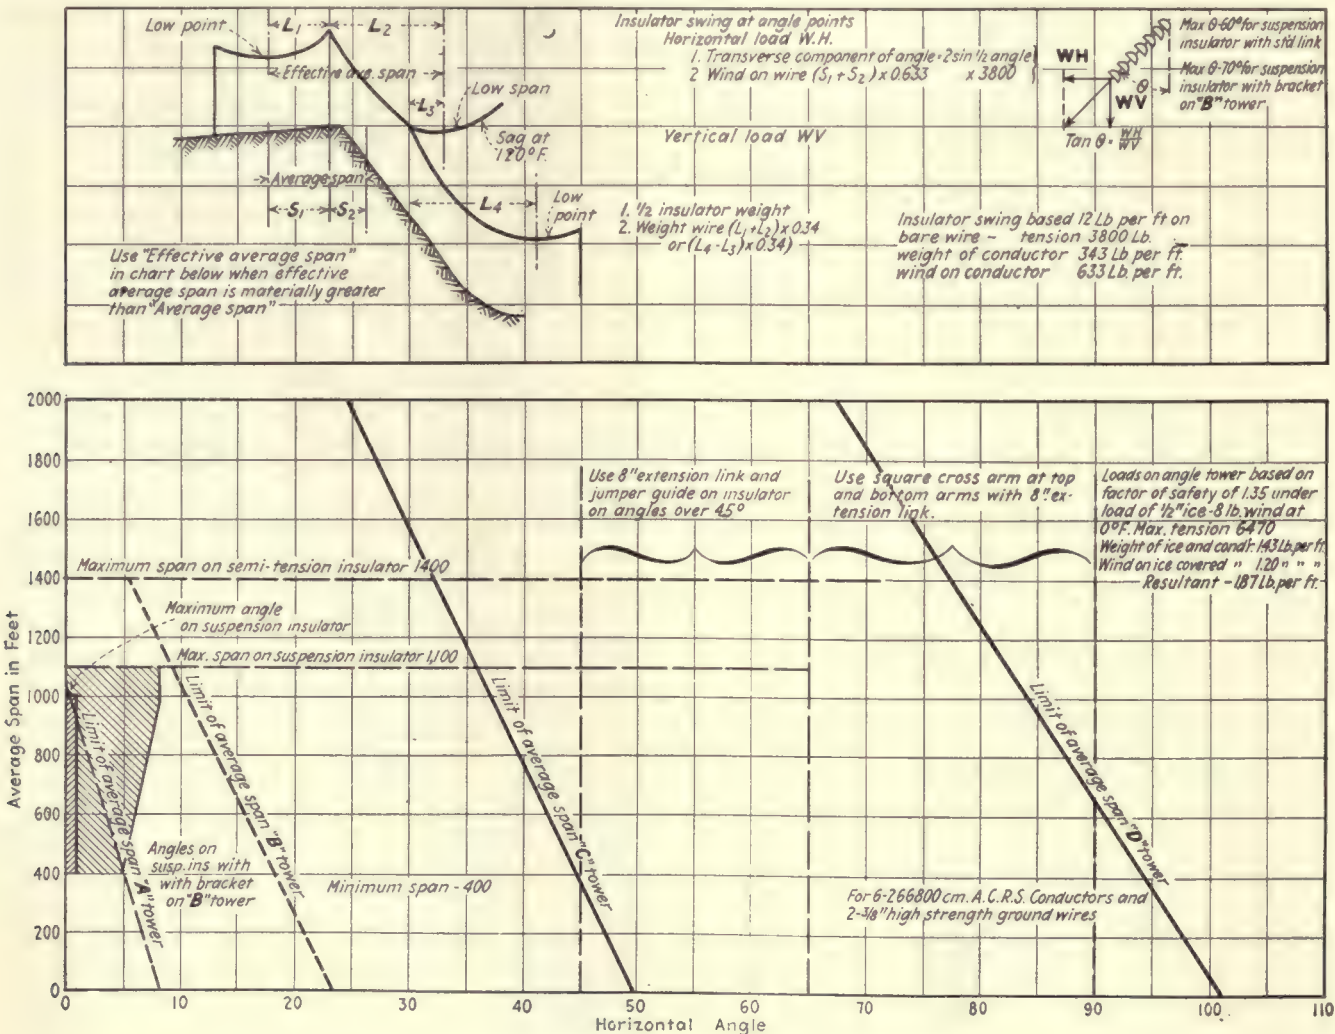 Low point
L₁
L₂
Effective ave. span
L₃
Low span
Sag at
120°F.
Average span
S₁
S₂
L₄
Low
point
Use "Effective average span"
in chart below when effective
average span is materially greater
than "Average span"
Insulator swing at angle points
Horizontal load W.H.
1. Transverse component of angle = 2 sin ½ angle
2 Wind on wire (S₁ + S₂) x 0.633 x 3800
Vertical load WV
1. ½ insulator weight
2. Weight wire (L₁+L₂) x 0.34
or (L₄-L₃) x 0.34)
WH
θ
WV
Tan θ = WH/WV
Max θ-60° for suspension
insulator with st'd link
Max θ-70° for suspension
insulator with bracket
on "B" tower
Insulator swing based 12 Lb per ft on
bare wire - tension 3800 Lb.
weight of conductor 343 Lb per ft.
wind on conductor 633 Lb. per ft.
2000
1800
1600
1400
1200
1000
800
600
400
200
0
Average Span in Feet
Maximum span on semi-tension insulator 1400
Maximum angle
on suspension insulator
Max. span on suspension insulator 1,100
Limit of average span "A" tower
Limit of average span "B" tower
Limit of average span "C" tower
Limit of average span "D" tower
Angles on
susp. ins with
with bracket
on "B" tower
Minimum span - 400
Use 8" extension link and
jumper guide on insulator
on angles over 45°
Use square cross arm at top
and bottom arms with 8" ex-
tension link.
Loads on angle tower based on
factor of safety of 1.35 under
load of ½" ice - 8 lb. wind at
0°F. Max. tension 6470
Weight of ice and condt. 1.43 Lb. per ft.
Wind on ice covered " 1.20 " " "
Resultant - 1.87 Lb. per ft.
For 6-266800 cm. A.C.R.S. Conductors and
2-3/8" high strength ground wires
0 10 20 30 40 50 60 70 80 90 100 110
Horizontal Angle